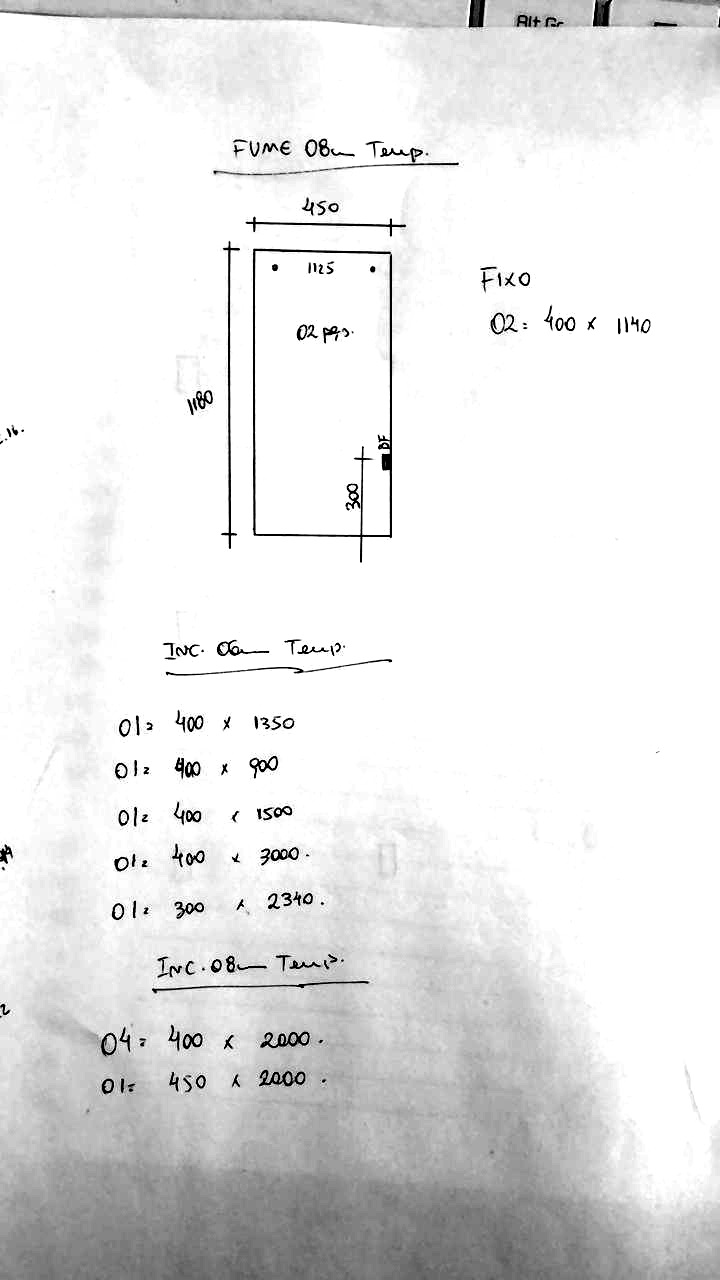 Alt Gr
FUME 08m Temp.
450
1125
FIXO
02 pçs.
02= 400 x 1140
1180
BF
300
INC. 06m Temp.
01= 400 x 1350
01= 400 x 900
01= 400 x 1500
01= 400 x 3000.
01= 300 x 2340.
INC. 08m Temp.
04= 400 x 2000.
01= 450 x 2000.